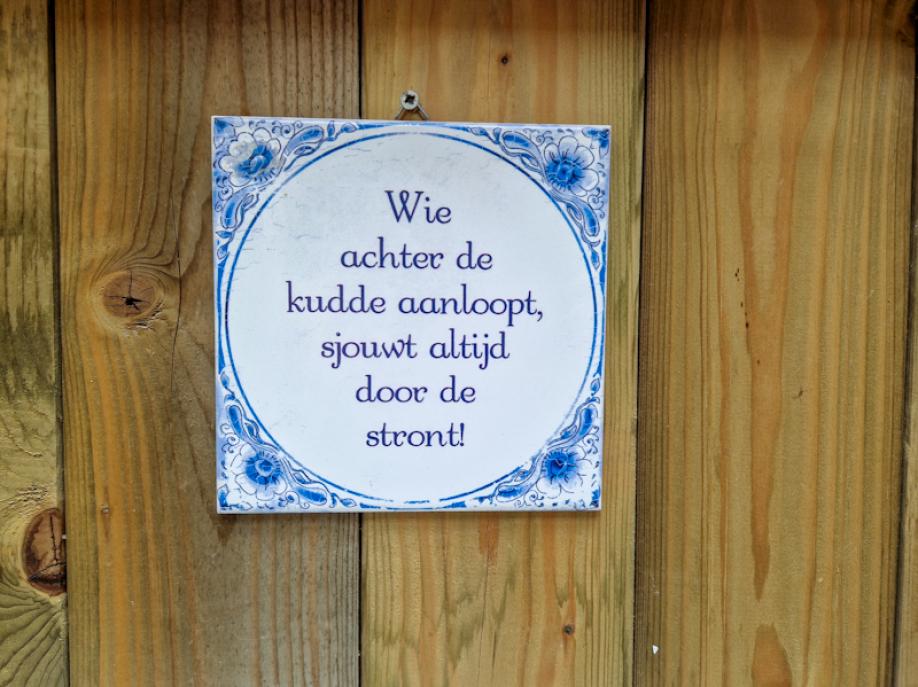 Wie
achter de
kudde aanloopt,
sjouwt altijd
door de
stront!